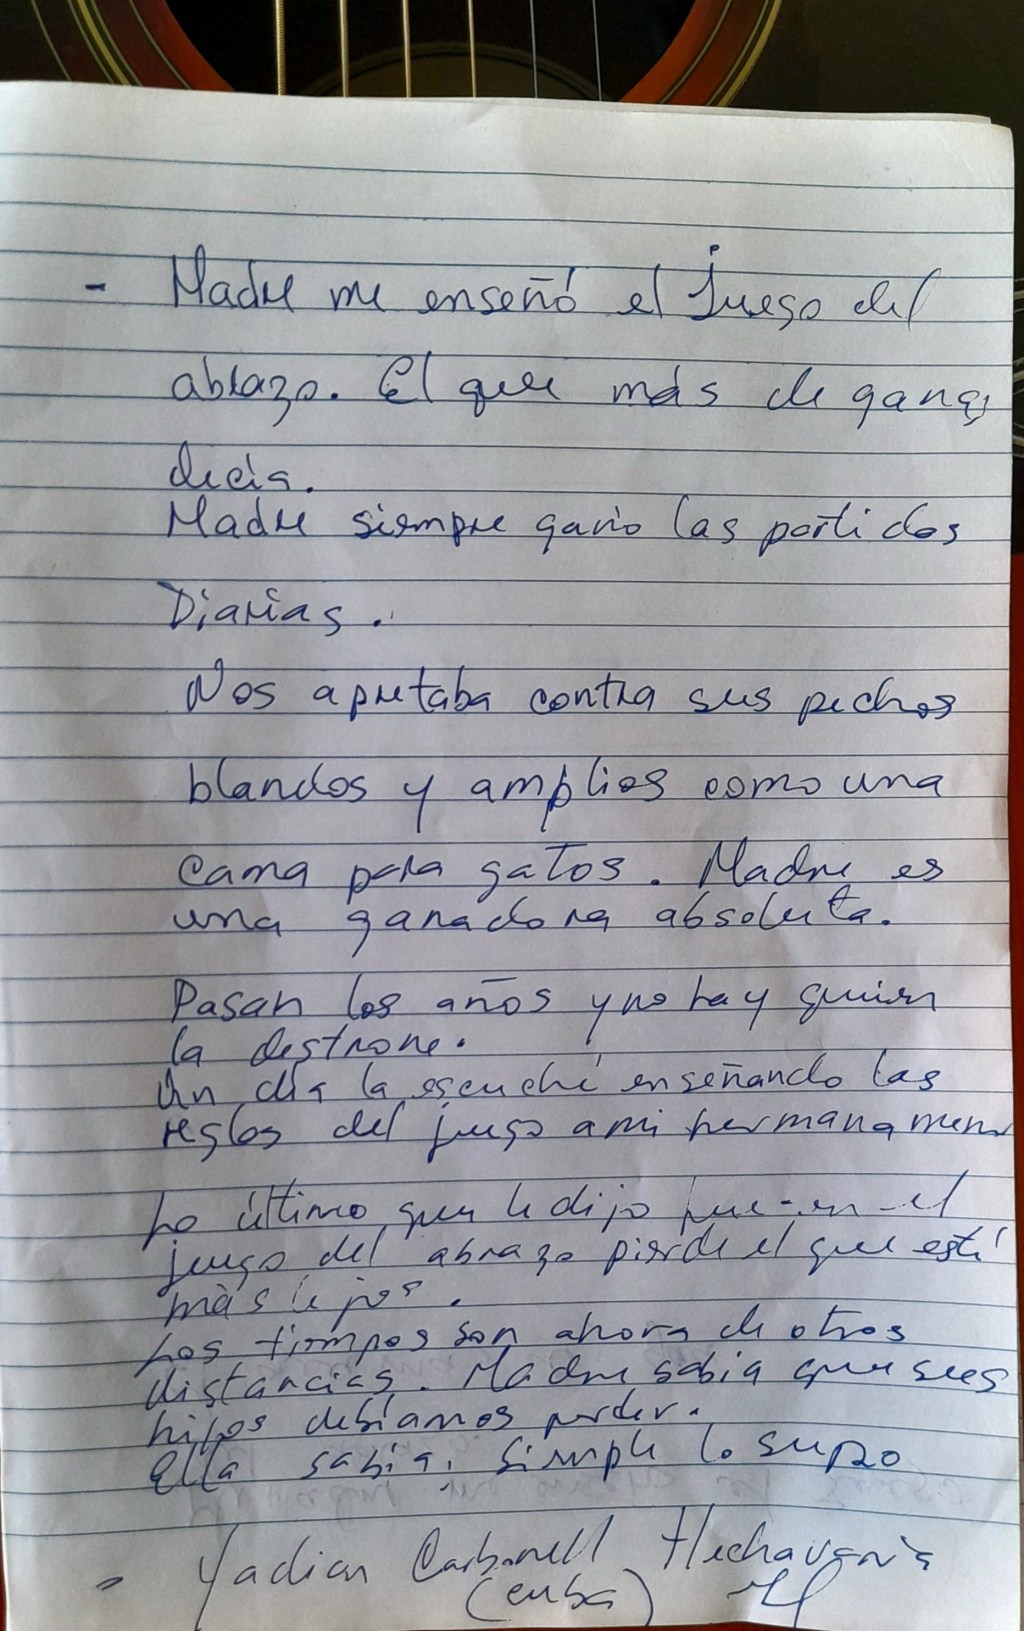 - Madre me enseñó el juego del
abrazo. El que más dé gana,
decía.
Madre siempre ganó las partidas
Diarias.
Nos apretaba contra sus pechos
blandos y amplios como una
cama para gatos. Madre es
una ganadora absoluta.
Pasan los años y no hay quien
la destrone.
Un día la escuché enseñando las
reglas del juego a mi hermana menor
Lo último que le dijo fue - en el
juego del abrazo pierde el que está
más lejos.
Los tiempos son ahora de otros
distancias. Madre sabía que sus
hijos debíamos perder.
Ella sabía. Siempre lo supo
- Yadian Carbonell Hechavarría
(cuba)